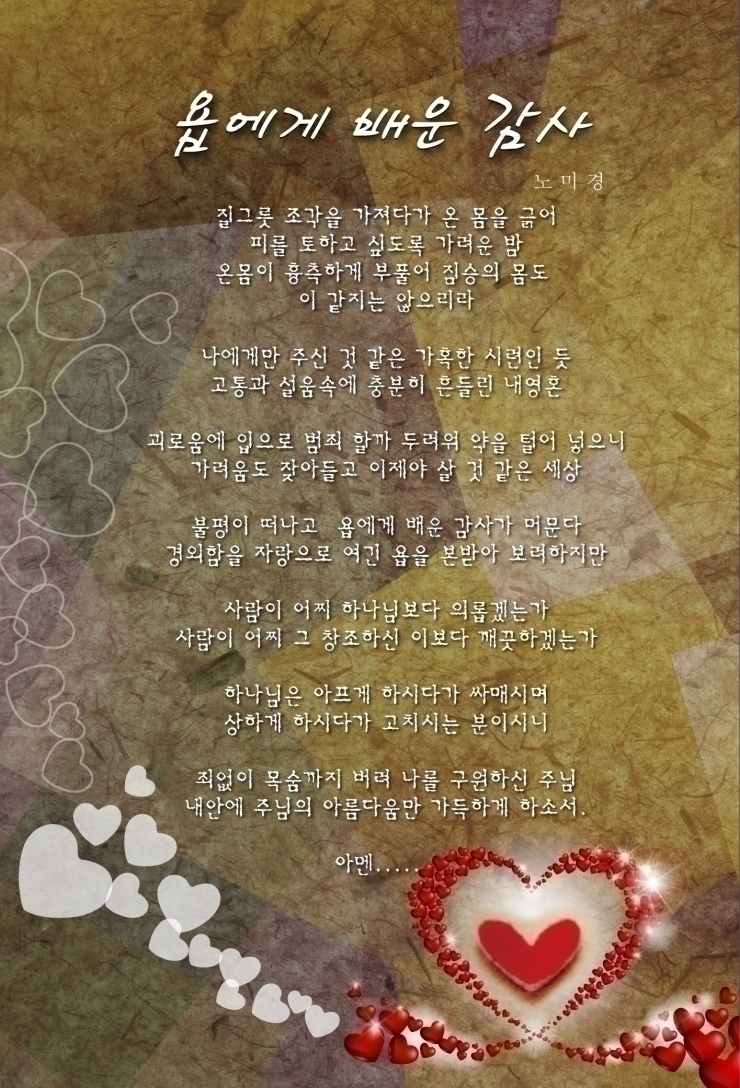 욥에게 배운 감사
노 미 경
질그릇 조각을 가져다가 온 몸을 긁어
피를 토하고 싶도록 가려운 밤
온몸이 흉측하게 부풀어 짐승의 몸도
이 같지는 않으리라
나에게만 주신 것 같은 가혹한 시련인 듯
고통과 설움속에 충분히 흔들린 내영혼
괴로움에 입으로 범죄 할까 두려워 약을 털어 넣으니
가려움도 잦아들고 이제야 살 것 같은 세상
불평이 떠나고 욥에게 배운 감사가 머문다
경외함을 자랑으로 여긴 욥을 본받아 보려하지만
사람이 어찌 하나님보다 의롭겠는가
사람이 어찌 그 창조하신 이보다 깨끗하겠는가
하나님은 아프게 하시다가 싸매시며
상하게 하시다가 고치시는 분이시니
죄없이 목숨까지 버려 나를 구원하신 주님
내안에 주님의 아름다움만 가득하게 하소서.
아멘.....